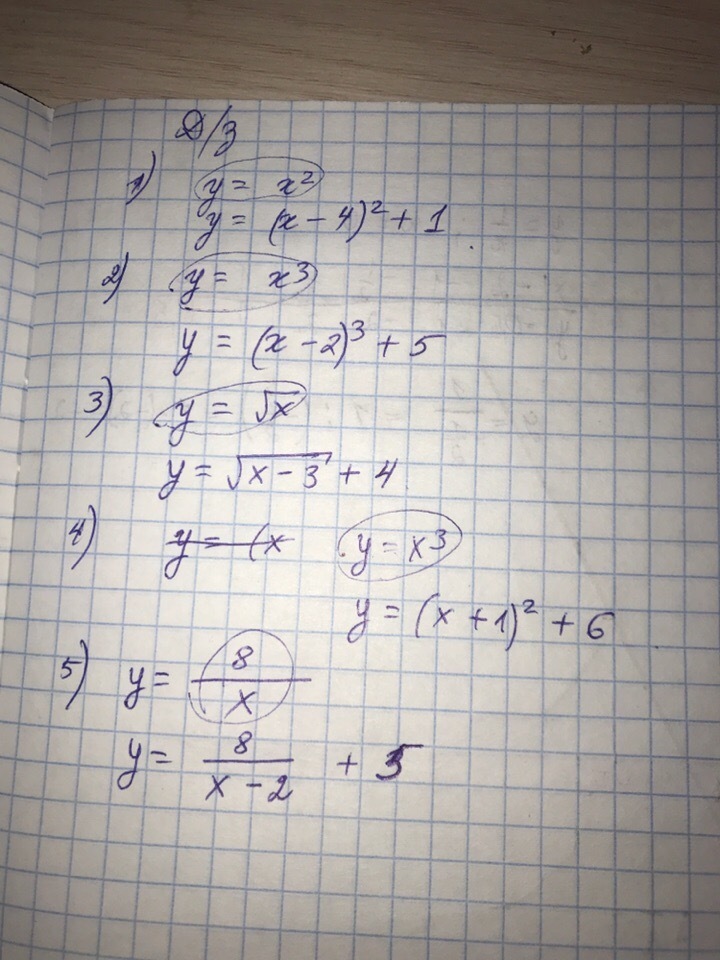 Д/З
1) y = x²
y = (x - 4)² + 1
2) y = x³
y = (x - 2)³ + 5
3) y = √x
y = √(x - 3) + 4
4) y = (x y = x³
y = (x + 1)² + 6
5) y = 8/x
y = 8/(x - 2) + 5